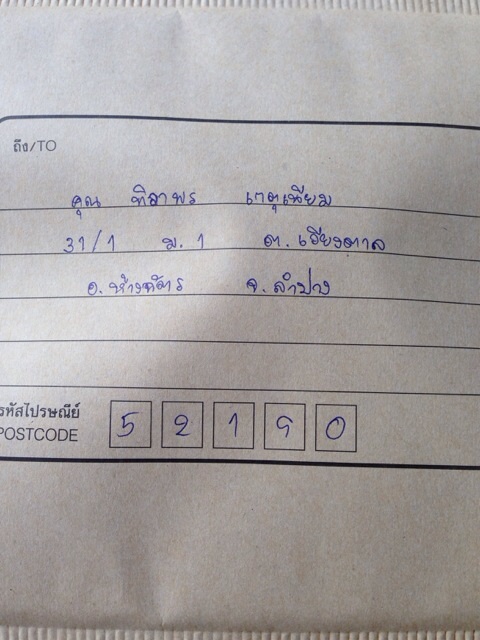 ถึง/TO
คุณ ทิลาพร เกตุเนียม
31/1 ม.1 ต.เวียงตาล
อ.ห้างฉัตร จ.ลำปาง
รหัสไปรษณีย์
POSTCODE
52190